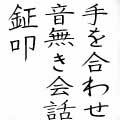 手を合わせ
音無き会話
鉦叩